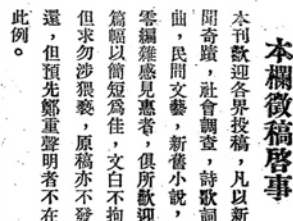 本欄徵稿啓事
本刊歡迎各界投稿，凡以新
聞奇蹟，社會調查，詩歌詞
曲，民間文藝，新舊小說，
零編雜感見惠者，俱所歡迎
篇幅以簡短爲佳，文白不拘
但求勿涉猥褻，原稿亦不發
還，但預先鄭重聲明者不在
此例。